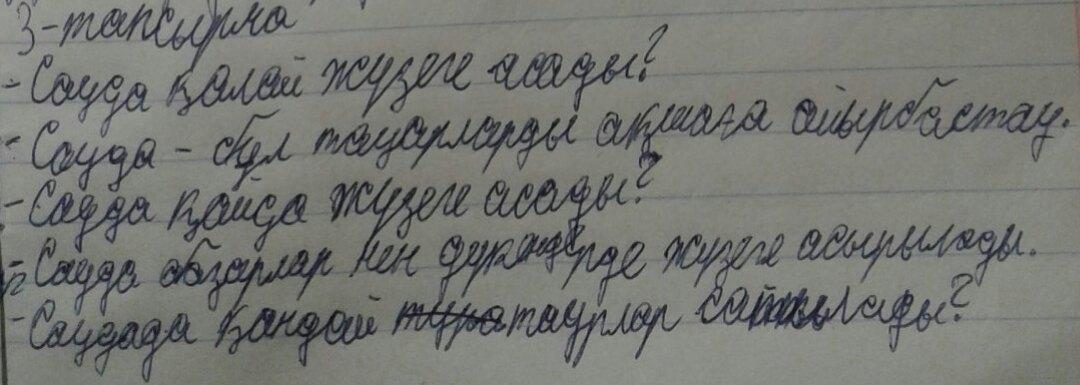 3-тапсырма
- Сауда қалай жүзеге асады?
- Сауда - бұл тауарларды ақшаға айырбастау.
- Сауда қайда жүзеге асады?
- Сауда базарлар мен дүкендерде жүзеге асырылады.
- Саудада қандай таурлар сатылады?